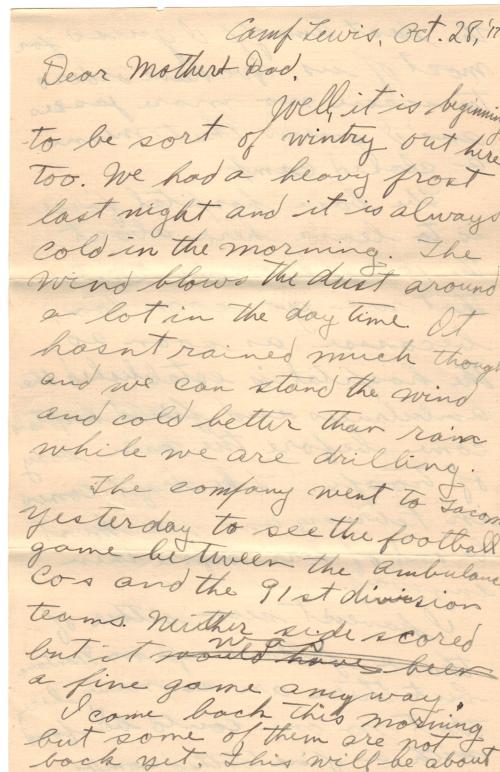 Camp Lewis, Oct. 28, '17
Dear Mother & Dad,
Well, it is beginning
to be sort of wintry out here
too. We had a heavy frost
last night and it is always
cold in the morning. The
wind blows the dust around
a lot in the day time. It
hasn't rained much though
and we can stand the wind
and cold better than rain
while we are drilling.
The company went to Tacoma
yesterday to see the football
game between the ambulance
Cos and the 91st division
teams. Neither side scored
was
but it would have been
a fine game anyway.
I come back this morning
but some of them are not
back yet. This will be about